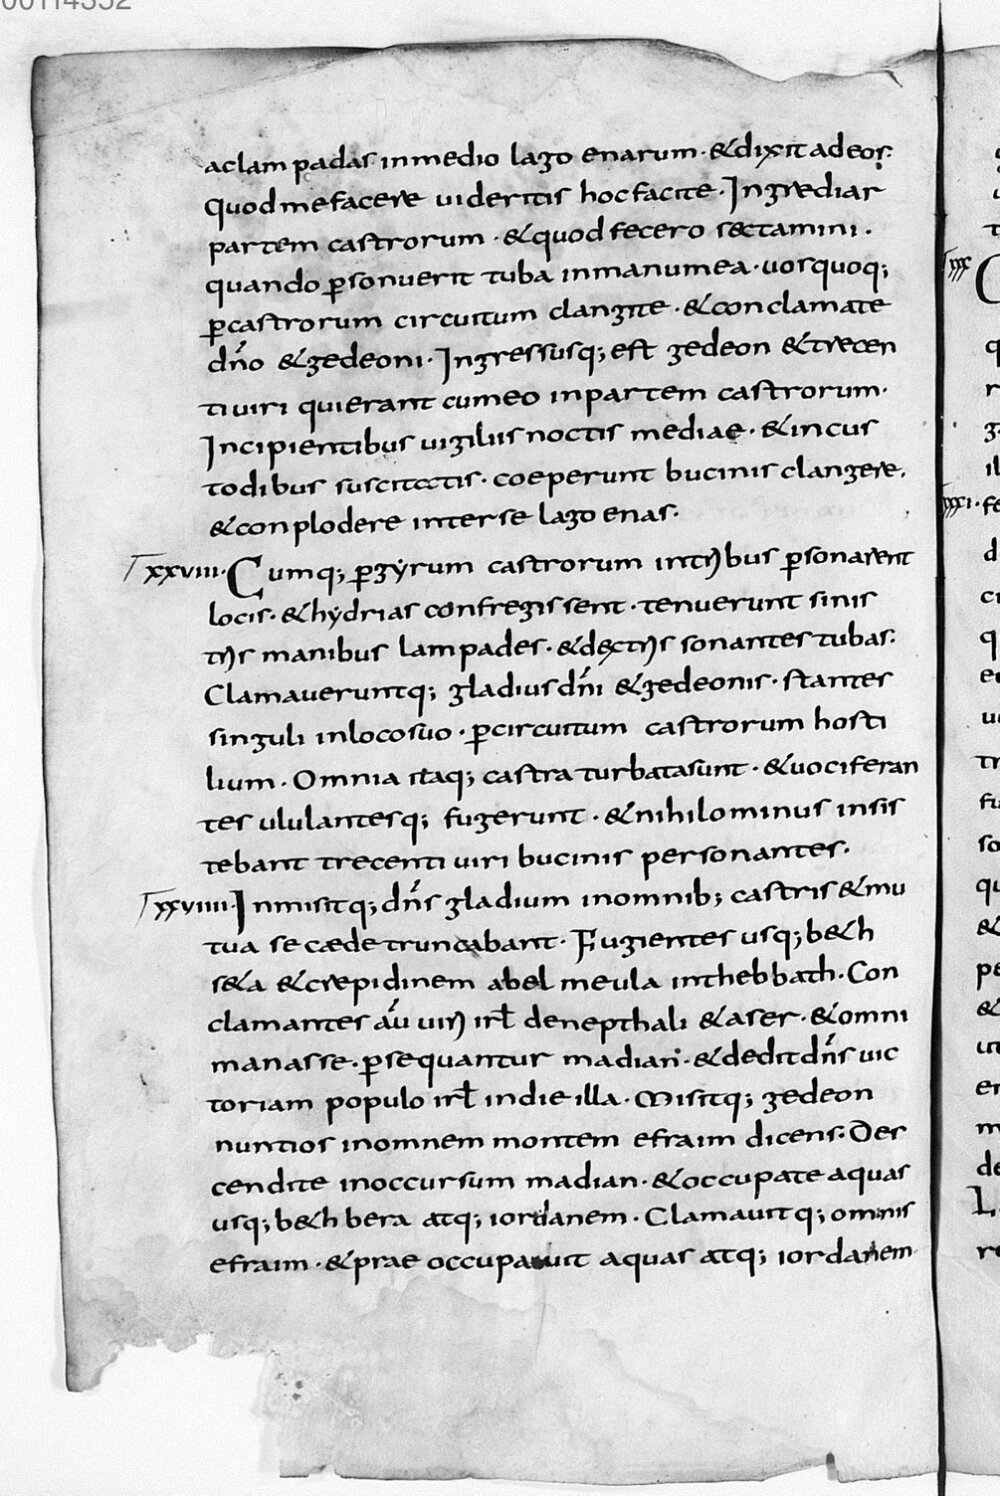 aclam padas inmedio lago enarum · &dixit adeos·
quodmefacere uideritis hocfacite · Ingrediar
partem castrorum · &quodfecero sectamini ·
quando ꝑsonuerit tuba inmanumea · uosquoq;
ꝑcastrorum circuitum clangite · &conclamate
dn̄o &gedeoni · Ingressusq; est gedeon &trecen
tiuiri quierant cumeo inpartem castrorum ·
Incipientibus uigiliis noctis mediae · &incus
todibus suscitatis · coeperunt bucinis clangere.
&conplodere interse lago enas ·
xxviii · Cumq; ꝑgyrum castrorum intribus ꝑsonarent
locis · &hydrias confregissent · tenuerunt sinis
tris manibus lampades · &dextris sonantes tubas·
Clamaueruntq; gladiusdn̄i &gedeonis · stantes
singuli inlocosuo · ꝑcircuitum castrorum hosti
lium · Omnia itaq; castra turbatasunt · &uociferan
tes ululantesq; fugerunt · &nihilominus insis
tebant trecenti uiri bucinis personantes ·
xxviiii · Inmisitq; dn̄s gladium inomnib; castris &mu
tua se cæde truncabant · Fugientes usq; b&h
s&a &crepidinem abel meula inthebbath · Con
clamantes aū uiri isrƚ denepthali &aser · &omni
manasse · ꝑsequantur madian · &deditdn̄s uic
toriam populo isrƚ indie illa · Misitq; gedeon
nuntios inomnem montem efraim dicens · Des
cendite inoccursum madian · &occupate aquas
usq; b&h bera atq; iordanem · Clamauitq; omnis
efraim · &prae occupauit aquas atq; iordanem